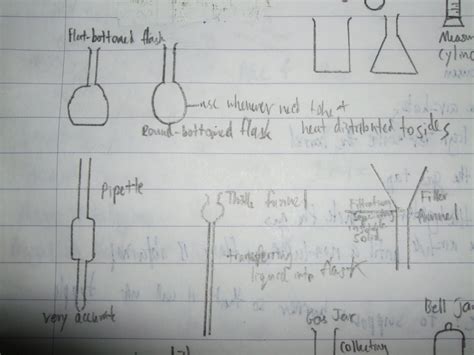 Flat-bottomed flask
Measu
Cylin
use whenever need to
heat distributed to sides
Round-bottomed flask
Pipette
Thistle funnel
Filter
funnel
Filtration
Solids
transferring
liquid into flask
very accurate
Gas Jar
collecting
Bell Ja